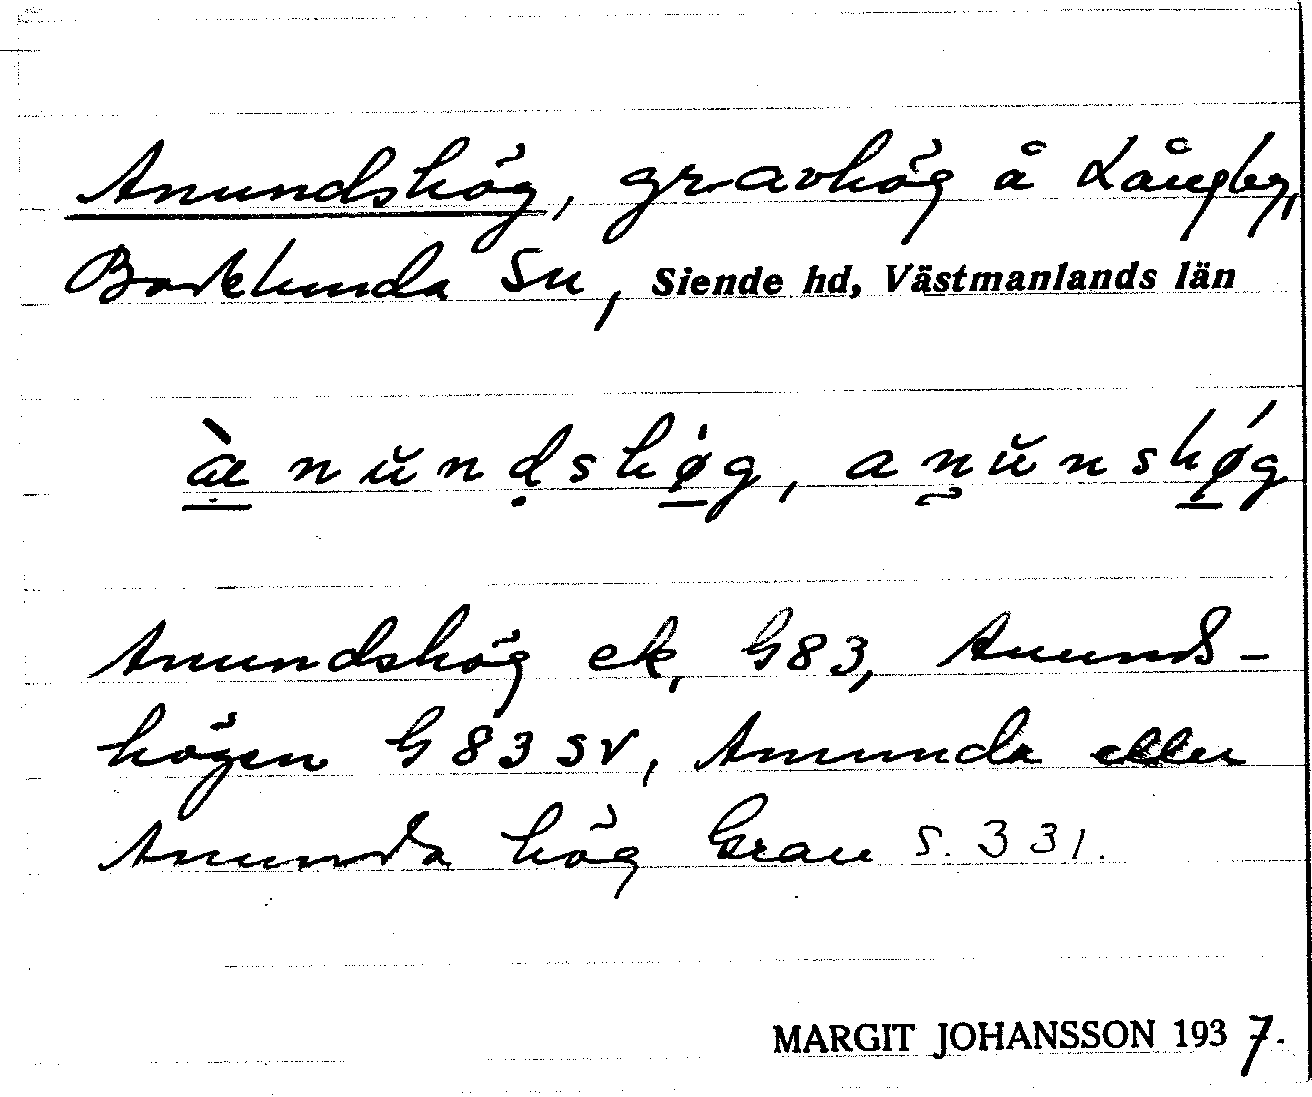 Anundshög, gravhög å Långby,
Badelunda sn, Siende hd, Västmanlands län
æ̀nŭnḍshǿg, anŭnshǿg
Anundshög ek, G83, Anunds-
högen G83 SV, Anunda eller
Anunda hög Grau s. 331.
MARGIT JOHANSSON 1937.